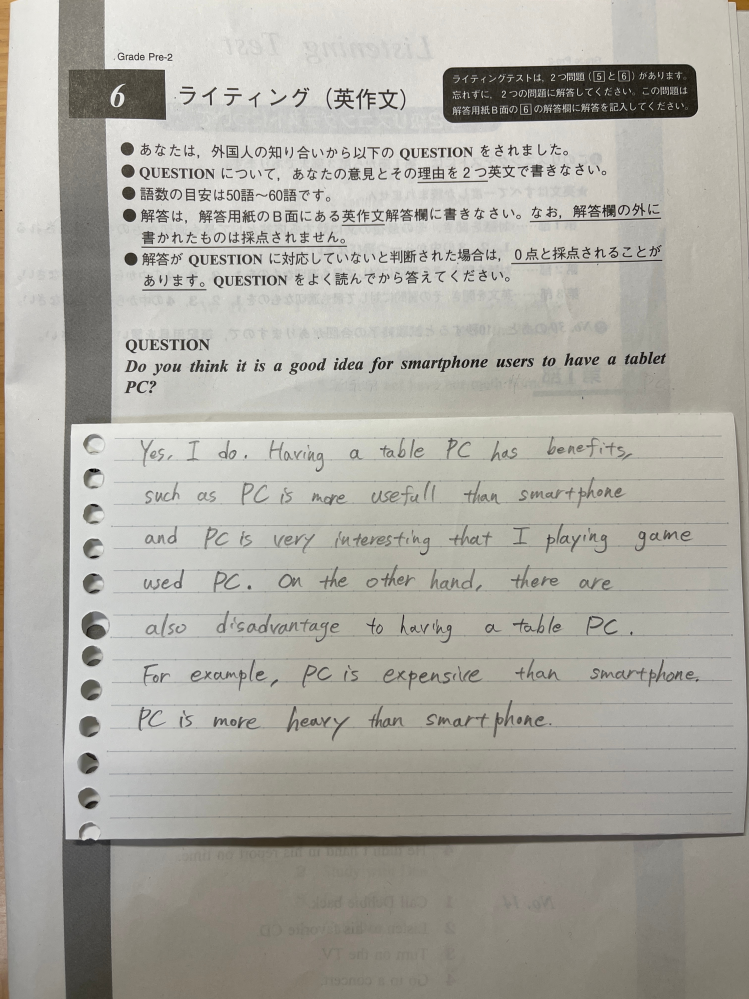 Grade Pre-2
6 ライティング（英作文）
ライティングテストは，2つ問題（5と6）があります。
忘れずに，2つの問題に解答してください。この問題は
解答用紙B面の6の解答欄に解答を記入してください。
● あなたは，外国人の知り合いから以下の QUESTION をされました。
● QUESTION について，あなたの意見とその理由を2つ英文で書きなさい。
● 語数の目安は50語～60語です。
● 解答は，解答用紙のB面にある英作文解答欄に書きなさい。なお，解答欄の外に
書かれたものは採点されません。
● 解答が QUESTION に対応していないと判断された場合は，0点と採点されることが
あります。QUESTION をよく読んでから答えてください。
QUESTION
Do you think it is a good idea for smartphone users to have a tablet
PC?
Yes, I do. Having a table PC has benefits,
such as PC is more usefull than smartphone
and PC is very interesting that I playing game
used PC. On the other hand, there are
also disadvantage to having a table PC.
For example, PC is expensive than smartphone.
PC is more heavy than smartphone.